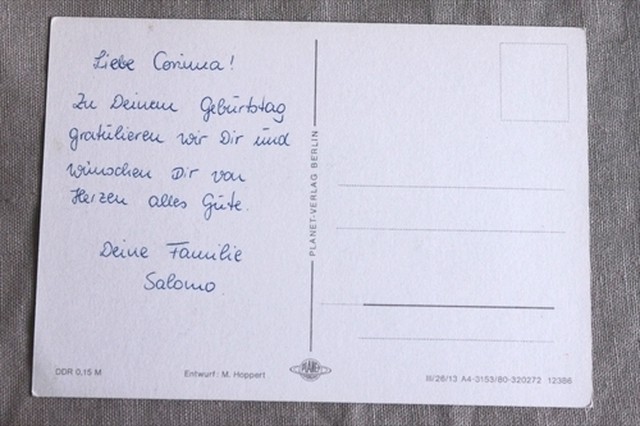 Liebe Corinna!
Zu Deinem Geburtstag
gratulieren wir Dir und
wünschen Dir von
Herzen alles Gute.
Deine Familie
Salomo
PLANET-VERLAG BERLIN
DDR 0,15 M
Entwurf: M. Hoppert
PLANET
III/26/13 A4-3153/80-320272 12386